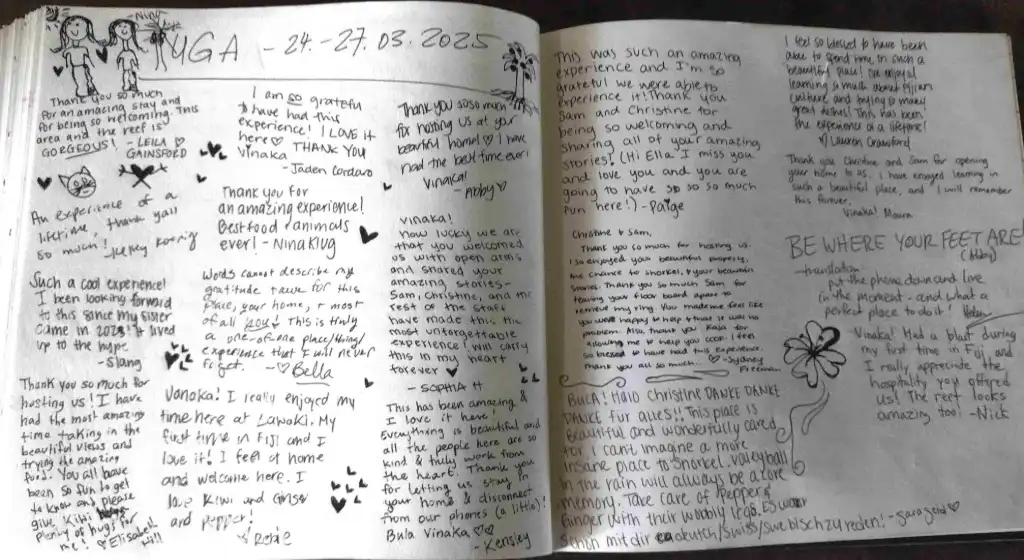 UGA - 24.-27.03.2025
Thank you so much
for an amazing stay and
for being so welcoming. This
area and the reef is
GORGEOUS! - LEILA
GAINSFORD
An experience of a
lifetime, thank yall
so much!
Such a cool experience!
I been looking forward
to this since my sister
came in 2023! It lived
up to the hype
Thank you so much for
hosting us! I have
had the most amazing
time taking in the
beautiful views and
trying the amazing
food. You all have
been so fun to get
to know and please
give Kiwi
plenty of hugs for
me!
I am so grateful
to have had this
experience! I LOVE IT
here ♡ THANK YOU
Vinaka
- Jaden Cordaro
Thank you for
an amazing experience!
Best food + animals
ever! - Nina Klug
Words cannot describe my
gratitude I have for this
place, your home, + most
of all you! This is truly
a one-of-one place/thing/
experience that I will never
forget. - ♡ Bella
Vonaka! I really enjoyed my
time here at Lawaki. My
first time in FIJI and I
love it! I feel at home
and welcome here. I
love Kiwi and Ginger
and pepper!
Thank you soso much
for hosting us at your
beautiful home! ♡ I have
had the best time ever!
Vinaka!
- Abby ♡
Vinaka!
how lucky we are
that you welcomed
us with open arms
and shared your
amazing stories-
Sam, Christine, and the
rest of the staff
have made this the
most unforgettable
experience I will carry
this in my heart
forever ♥
- SOPHIA H
This has been amazing &
I love it here!
Everything is beautiful and
all the people here are so
kind & truly work from
the heart. Thank you
for letting us stay in
your home & disconnect
from our phones (a little)!
Bula Vinaka ♡♡
- Kensley
This was such an amazing
experience and I'm so
grateful we were able to
experience it! Thank you
Sam and Christine for
being so welcoming and
sharing all of your amazing
stories! (Hi Ella I miss you
and love you and you are
going to have so so so much
fun here!) - Paige
Christine & Sam,
Thank you so much for hosting us.
I so enjoyed your beautiful property,
the chance to snorkel, & your beautiful
stories. Thank you so much Sam for
tearing your floor board apart to
retrieve my ring. You made me feel like
you were happy to help & that it was no
problem. Also, thank you Kaja for
allowing me to help you cook. I feel
so blessed to have had this experience.
Thank you all so much. ♡ - Sydney
Freeman
BULA! Hallo christine DANKE DANKE
DANKE für ALLES!! This place is
Beautiful and wonderfully cared
for, I can't imagine a more
insane place to snorkel. Volleyball
in the rain will always be a core
memory. Take care of Pepper &
Ginger with their wobbly legs. Es war
schön mit dir deutsch/Swiss/swebisch zu reden! - sara
I feel so blessed to have been
able to spend time in such a
beautiful place! I've enjoyed
learning so much about Fijian
culture and trying so many
great dishes! This has been
the experience of a lifetime!
♡ Lauren Crawford
Thank you Christine and Sam for opening
your home to us. I have enjoyed learning in
such a beautiful place, and I will remember
this forever.
Vinaka! Maura
BE WHERE YOUR FEET ARE!
(Abby)
- translation
put the phone down and live
in the moment - and what a
perfect place to do it!
Vinaka! Had a blast during
my first time in Fiji and
I really appreciate the
hospitality you offered
us! The reef looks
amazing too! - Nick